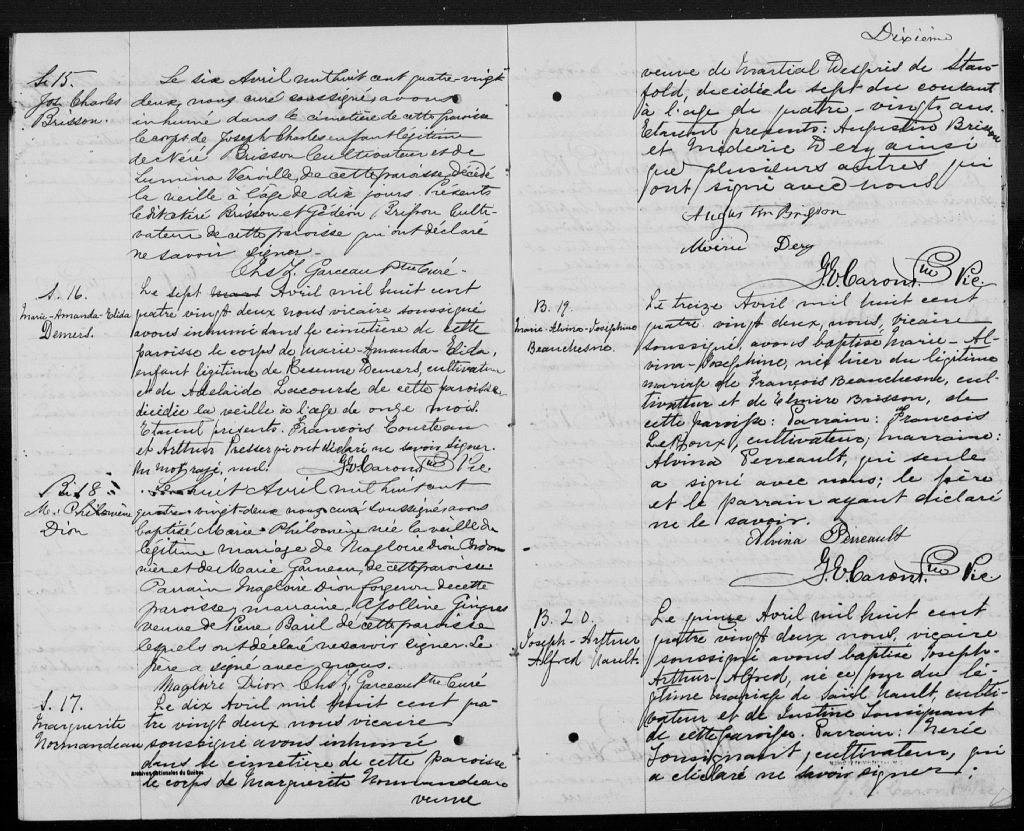 S. 15.
Jos. Charles
Brisson.
Le six Avril mil huit cent quatre-vingt
deux, nous curé soussigné, avons
inhumé dans le cimetière de cette paroisse
le corps de Joseph Charles enfant légitime
de Brisson Cultivateur et de
Lumina Verville de cette paroisse, décédé
la veille à l'âge de dix jours. Présents
Brisson et Gédéon Brisson Culti-
vateur de cette paroisse qui ont déclaré
ne savoir signer.
Chs Z. Garceau Ptre Curé.
S. 16.
Marie-Amanda-Elida
Demers.
Le sept mars Avril mil huit cent
quatre vingt deux nous vicaire soussigné
avons inhumé dans le cimetière de cette
paroisse le corps de Marie-Amanda-Elida,
enfant légitime de Demers, cultivateur
et de Adelaïde Lacourse de cette paroisse
décédée la veille à l'age de onze mois.
Etaient presents. Francois Courteau
et Arthur Presser qui ont déclaré ne savoir signer.
Un mot rayé, nul. Caron Ptre Vic
B. 18
M. Philomène
Dion
Le huit Avril mil huit cent
quatre-vingt-deux nous curé soussigné, avons
baptisé Marie Philomène née la veille du
légitime mariage de Magloire Dion Cordon
nier et de Marie Garneau, de cette paroisse
Parrain Magloire Dion forgeron de cette
paroisse, marraine Apolline Gingras
veuve de Pierre Baril de cette paroisse
lesquels ont déclaré ne savoir signer. Le
père a signé avec nous.
Magloire Dion Chs Z. Garceau Ptre Curé
S. 17.
Marguerite
Normandeau
Le dix Avril mil huit cent qua-
tre vingt deux nous vicaire
soussigné avons inhumé
dans le cimetière de cette paroisse
le corps de Marguerite Normandeau
veuve
Archives nationales du Québec
Dixième
veuve de Martial Despris de Stan-
fold, décédée le sept du courant
à l'age de quatre-vingts ans.
Etaient presents: Augustin Brisson
et Méderic Dery ainsi
que plusieurs autres qui
ont signé avec nous
Augustin Brisson
Dery
Caron Ptre Vic.
B. 19.
Marie-Alvina-Josephine
Beauchesne.
Le treize Avril mil huit cent
quatre vingt deux, nous, vicaire
soussigné, avons baptisé Marie-Al-
vina-Josephine, née hier du légitime
mariage de François Beauchesne, cul-
tivateur et de Elmire Brisson, de
cette paroisse: Parrain: Francois
Leroux, cultivateur, marraine:
Alvina Perreault, qui seule
a signé avec nous; le père
et le parrain ayant déclaré
ne le savoir.
Alvina Perreault
Caron Ptre Vic
B. 20.
Joseph-Arthur
Alfred Nault.
Le quinze Avril mil huit cent
quatre vingt deux nous, vicaire
soussigné avons baptisé Joseph-
Arthur-Alfred, né ce jour du lé-
gitime mariage de Nault, culti-
vateur et de Justine Tousignant
de cette paroisse. Parrain:
Tousignant, cultivateur, qui
a déclaré ne savoir signer;